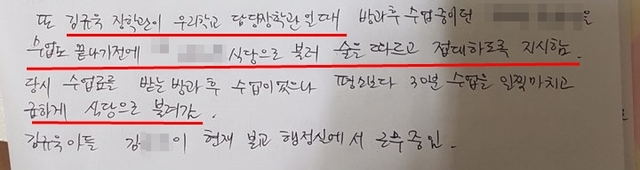 또 김규욱 장학관이 우리학교 담당장학관일때 방과후 수업중이던 을
수업도 끝나기전에 식당으로 불러 술을 따르고 접대하도록 지시함.
당시 수업료를 받는 방과후 수업이었으나 평소보다 30분 수업을 일찍마치고
급하게 식당으로 불려감.
김규욱아들 김 이 현재 본교 행정실에서 근무중임.